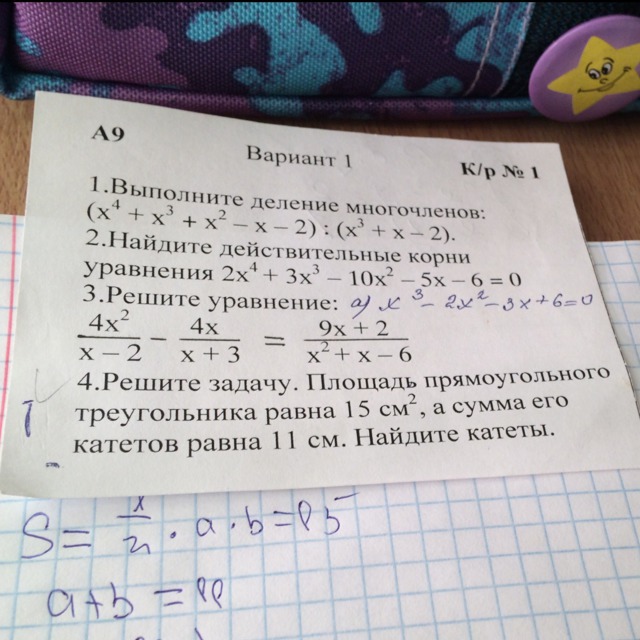 А9
Вариант 1
К/р № 1
1.Выполните деление многочленов:
(x⁴ + x³ + x² – x – 2) : (x³ + x – 2).
2.Найдите действительные корни
уравнения 2x⁴ + 3x³ – 10x² – 5x – 6 = 0
3.Решите уравнение: а) x³ – 2x² – 3x + 6 = 0
4x²/(x – 2) – 4x/(x + 3) = (9x + 2)/(x² + x – 6)
4.Решите задачу. Площадь прямоугольного
треугольника равна 15 см², а сумма его
катетов равна 11 см. Найдите катеты.
S = 1/2 · a · b = 15
a + b = 11